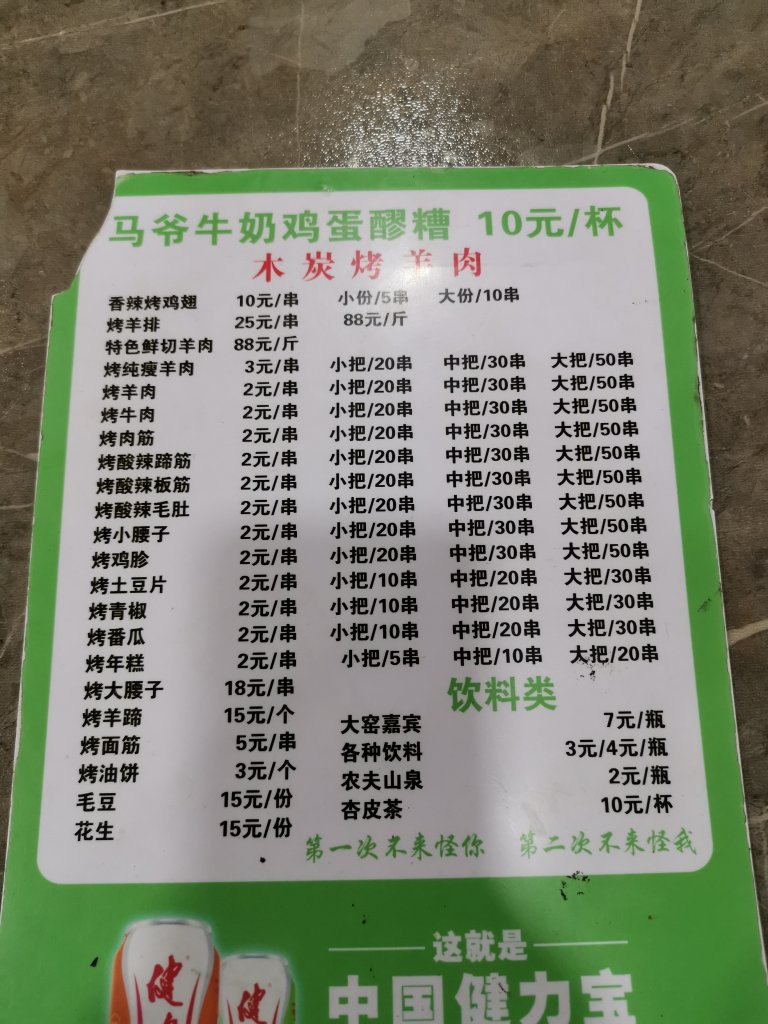 马爷牛奶鸡蛋醪糟 10元/杯
木炭烤羊肉
香辣烤鸡翅 10元/串 小份/5串 大份/10串
烤羊排 25元/串 88元/斤
特色鲜切羊肉 88元/斤
烤纯瘦羊肉 3元/串 小把/20串 中把/30串 大把/50串
烤羊肉 2元/串 小把/20串 中把/30串 大把/50串
烤牛肉 2元/串 小把/20串 中把/30串 大把/50串
烤肉筋 2元/串 小把/20串 中把/30串 大把/50串
烤酸辣蹄筋 2元/串 小把/20串 中把/30串 大把/50串
烤酸辣板筋 2元/串 小把/20串 中把/30串 大把/50串
烤酸辣毛肚 2元/串 小把/20串 中把/30串 大把/50串
烤小腰子 2元/串 小把/20串 中把/30串 大把/50串
烤鸡胗 2元/串 小把/20串 中把/30串 大把/50串
烤土豆片 2元/串 小把/10串 中把/20串 大把/30串
烤青椒 2元/串 小把/10串 中把/20串 大把/30串
烤番瓜 2元/串 小把/10串 中把/20串 大把/30串
烤年糕 2元/串 小把/5串 中把/10串 大把/20串
烤大腰子 18元/串
烤羊蹄 15元/个
烤面筋 5元/串
烤油饼 3元/个
毛豆 15元/份
花生 15元/份
饮料类
大窑嘉宾 7元/瓶
各种饮料 3元/4元/瓶
农夫山泉 2元/瓶
杏皮茶 10元/杯
第一次不来怪你 第二次不来怪我
这就是
中国健力宝
健
健